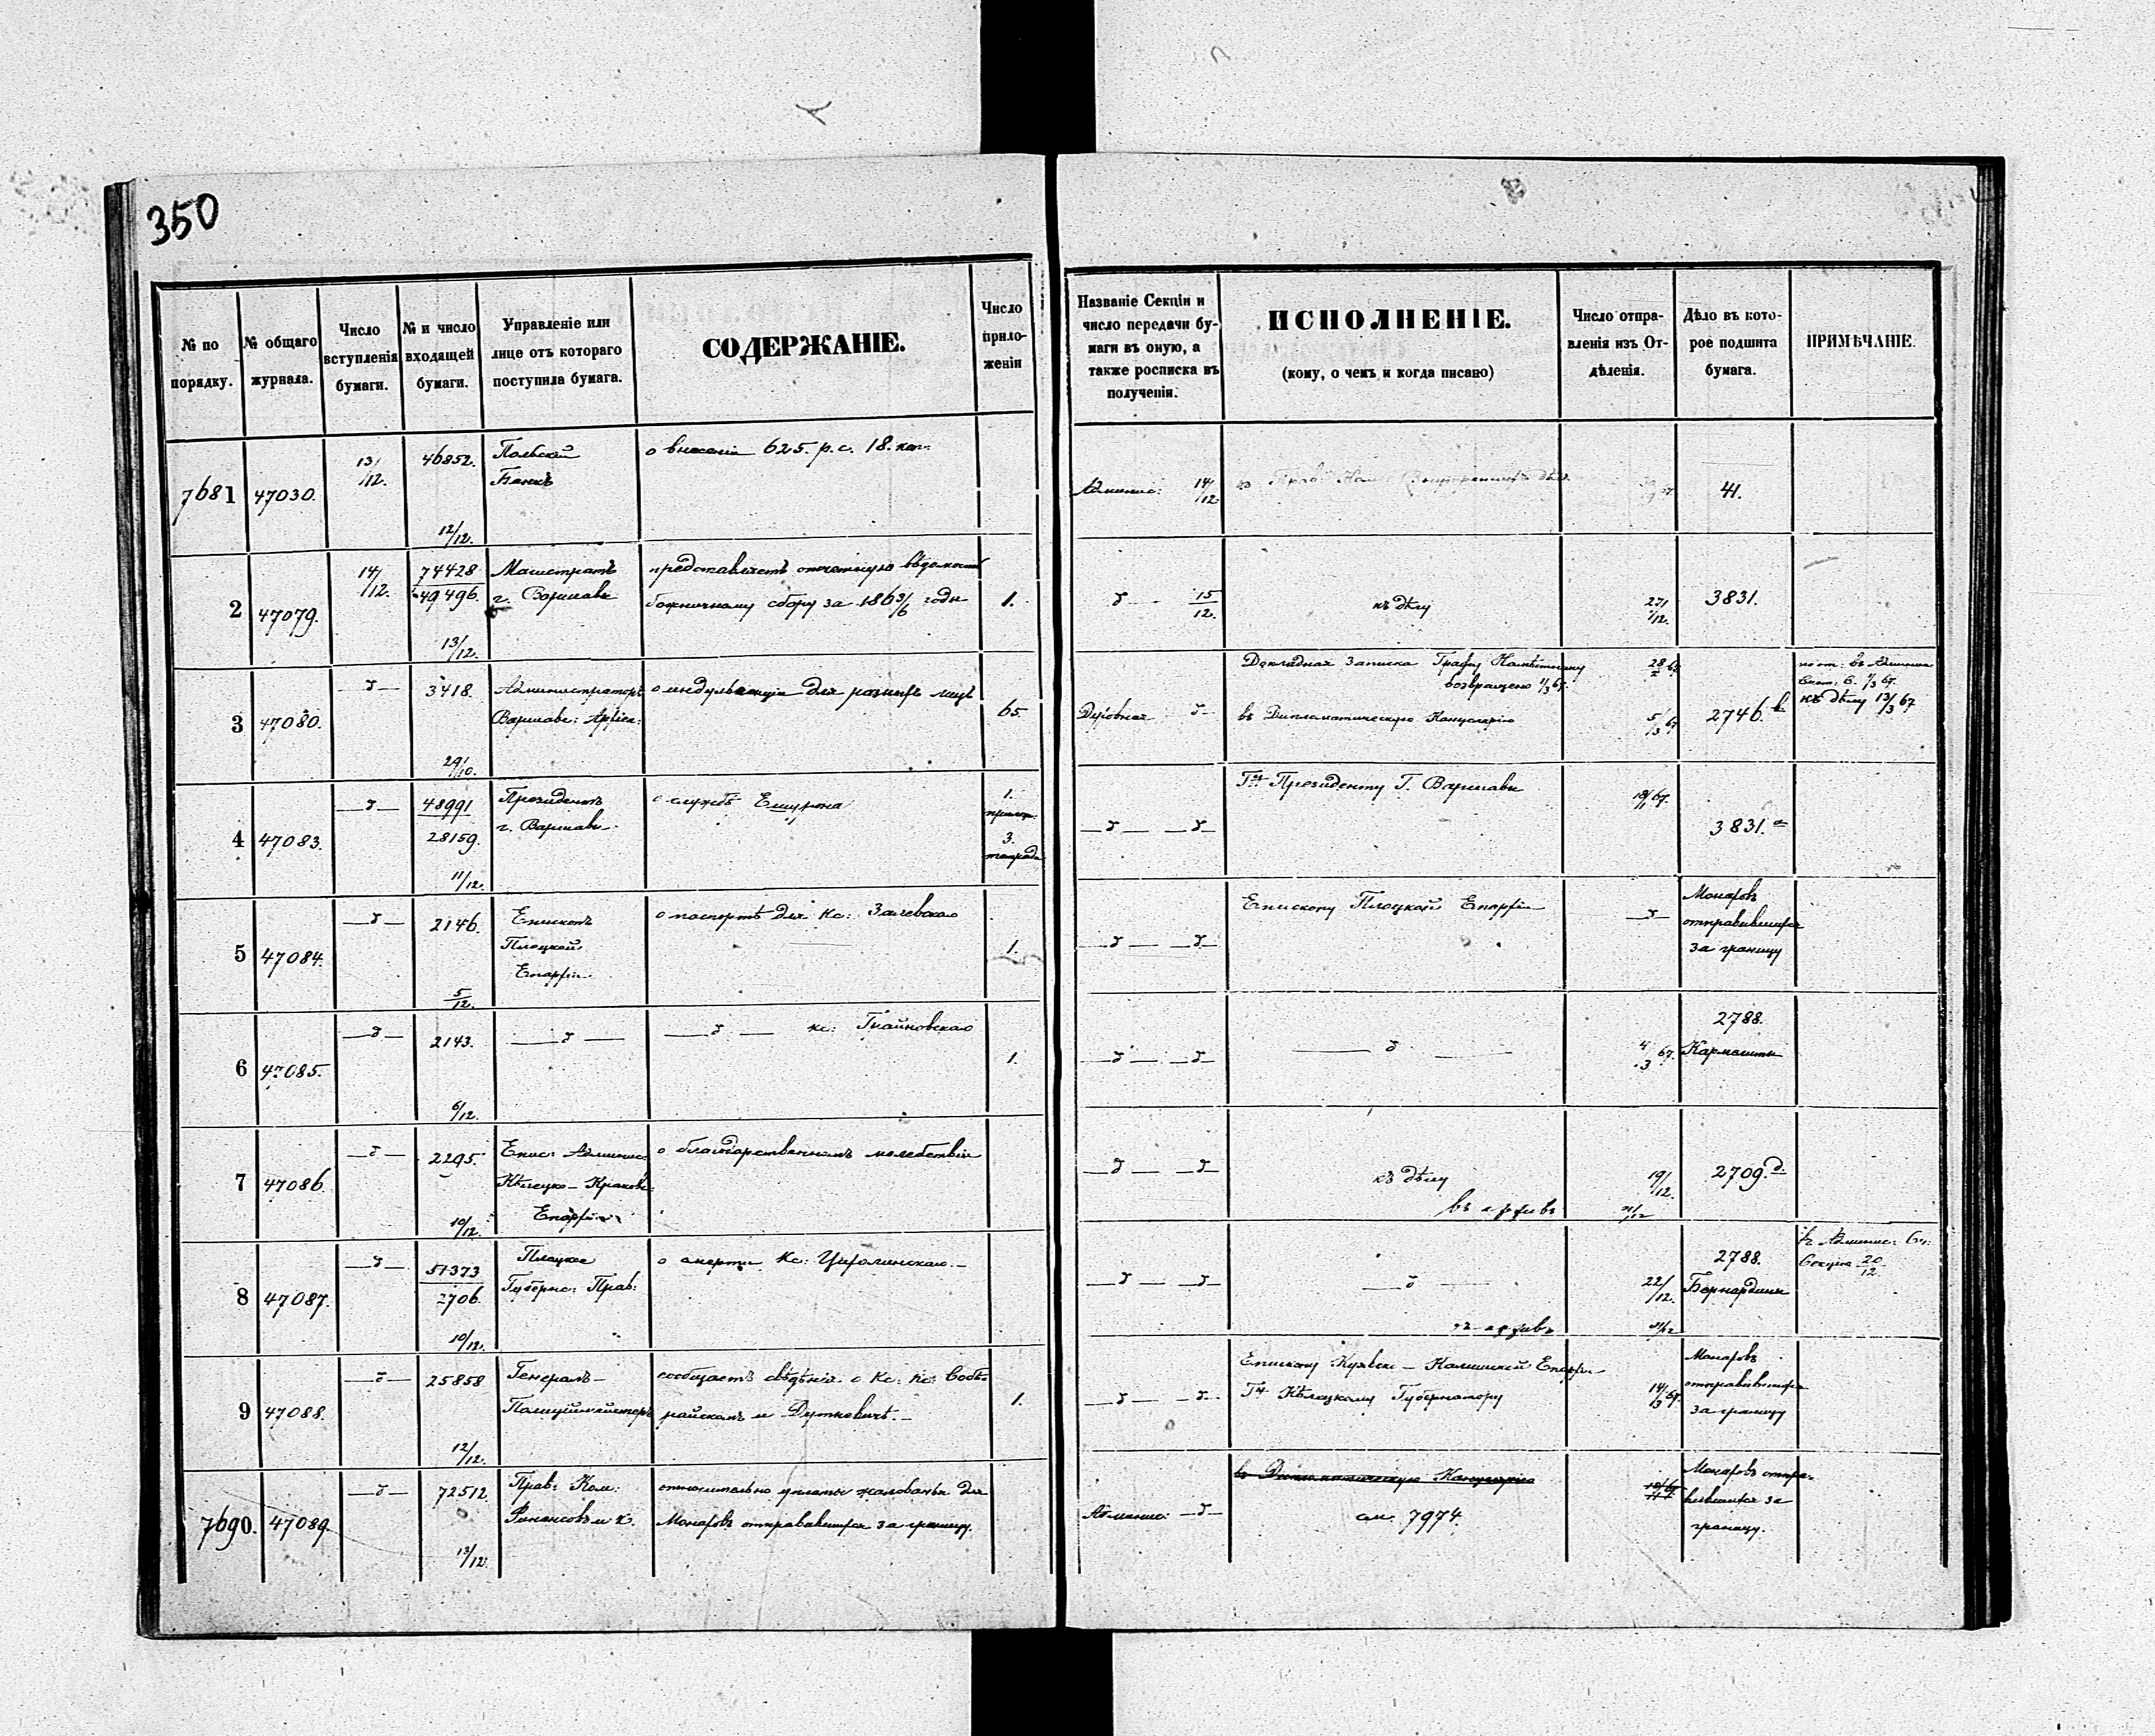 350
№ по порядку.
№ общаго журнала.
Число вступленія бумаги.
№ и число входящей бумаги.
Управленіе или лице отъ котораго поступила бумага.
СОДЕРЖАНІЕ.
Число приложеній
Названіе Секціи и число передачи бумаги въ оную, а также росписка въ полученіи.
ИСПОЛНЕНІЕ.
(кому, о чемъ и когда писано)
Число отправленія изъ Отдѣленія.
Дѣло въ которое подшита бумага.
ПРИМѢЧАНІЕ.
7681 47030. 13/12. 46852. 12/12.
Польскій
Банкъ
о внесеніи 625. р. с. 18. коп.
Админис: 14/12
41.
2 47079. 14/12. 74428 49496. 13/12.
Магистратъ
г. Варшавы
представляетъ отчетную вѣдомость
божничному сбору за 1863/6 годы
1.
15/12.
къ дѣлу
27/12.
3831.
3 47080. 3418. 29/10.
Администраторъ
Варшавс: Архіеп:
о индульгенціи для разныхъ лицъ
65.
Духовная
Докладная Записка Графу Намѣстнику
возвращено 11/3 67.
въ Дипломатическую Канцелярію
5/3 67
2746. b.
къ дѣлу 13/3 67
4 47083. 48991 28159. 11/12.
Президентъ
г. Варшавы
о службѣ
1.
3.
Гну Президенту Г. Варшавы
18/1 67.
3831. a
5 47084. 2146. 5/12.
Епископъ
Плоцкой
Епархіи
о паспортѣ для Кс: Залевскаго
1.
Епископу Плоцкой Епархіи
Монаховъ
отправившихся
за границу
6 47085. 2143. 6/12.
кс: Гнайновскаго
1.
4/3 67.
2788.
Кармелиты
7 47086. 2295. 10/12.
Епис: Админис:
Кѣлецко-Краковс:
Епархіи
о благодарственномъ молебствіи
къ дѣлу
въ архивъ
19/12.
31/12
2709. d.
8 47087. 51373 2706. 10/12.
Плоцкое
Губернс: Прав:
о смерти Кс:
въ архивъ
22/12.
31/12
2788.
Бернардины
20/12.
9 47088. 25858 12/12.
Генералъ-
Полицiймейстеръ
сообщаетъ свѣдѣнія о Кс: Кс:
и Дутковичѣ.
1.
Епископу Куявско-Калишской Епархіи
Гну Кѣлецкому Губернатору
14/3 67.
Монаховъ
отправившихся
за границу
7690. 47089. 72512. 13/12.
Прав: Ком:
Финансовъ и К.
относительно уплаты жалованья для
Монаховъ отправившихся за границу.
Админис:
въ Дипломатическую Канцелярію
см. 7974.
Монаховъ отпра-
вившихся за
границу.